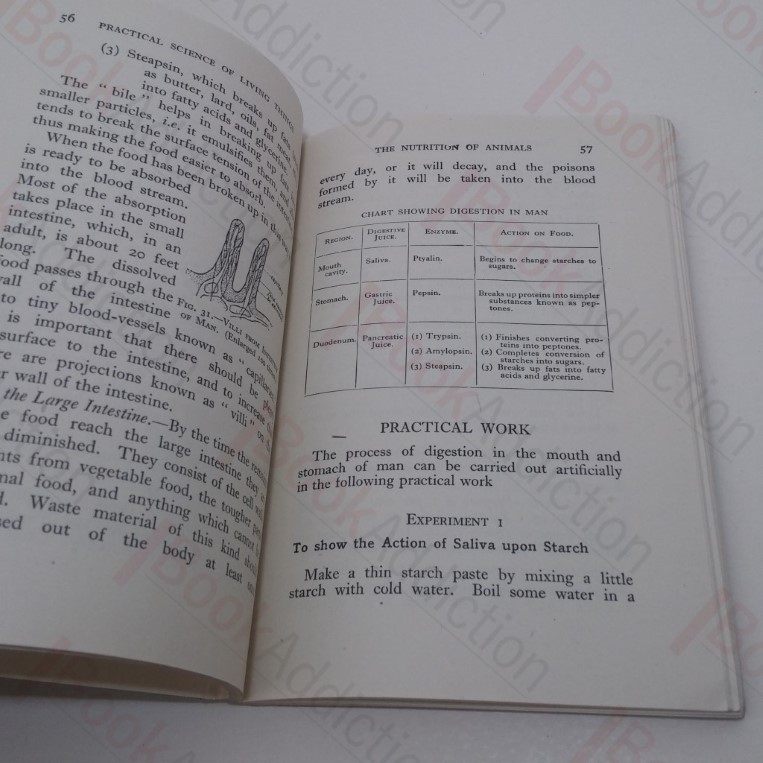 56
PRACTICAL SCIENCE OF LIVING THINGS
(3) Steapsin, which breaks up fats
as butter, lard, oils, fat meat
into fatty acids and glycerine.
The "bile" helps in breaking up fats
smaller particles, i.e. it emulsifies them, and
tends to break the surface tension of the
thus making the food easier to absorb.
When the food has been broken up in this
is ready to be absorbed
into the blood stream.
Most of the absorption
takes place in the small
intestine, which, in an
adult, is about 20 feet
long. The dissolved
food passes through the
wall of the intestine
to tiny blood-vessels known as capillaries
is important that there should be
surface to the intestine, and to increase
are projections known as "villi" on
wall of the intestine.
FIG. 31.—VILLI FROM
OF MAN. (Enlarged
the Large Intestine.—By the time the
food reach the large intestine they
diminished. They consist of the cell
from vegetable food, the tougher
food, and anything which cannot
Waste material of this kind
out of the body at least
THE NUTRITION OF ANIMALS
57
every day, or it will decay, and the poisons
formed by it will be taken into the blood
stream.
CHART SHOWING DIGESTION IN MAN
REGION. DIGESTIVE JUICE. ENZYME. ACTION ON FOOD.
Mouth cavity. Saliva. Ptyalin. Begins to change starches to sugars.
Stomach. Gastric Juice. Pepsin. Breaks up proteins into simpler substances known as peptones.
Duodenum. Pancreatic Juice. (1) Trypsin. (1) Finishes converting proteins into peptones.
(2) Amylopsin. (2) Completes conversion of starches into sugars.
(3) Steapsin. (3) Breaks up fats into fatty acids and glycerine.
PRACTICAL WORK
The process of digestion in the mouth and
stomach of man can be carried out artificially
in the following practical work
EXPERIMENT 1
To show the Action of Saliva upon Starch
Make a thin starch paste by mixing a little
starch with cold water. Boil some water in a
Book Addiction